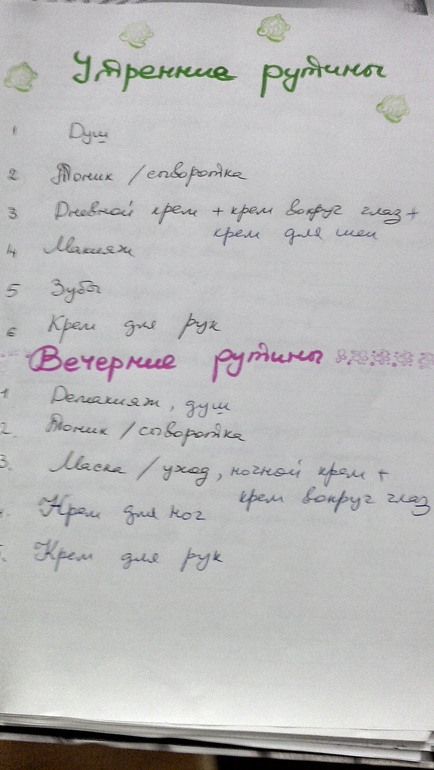 Утренние рутины
1 Душ
2 Тоник / сыворотка
3 Дневной крем + крем вокруг глаз +
крем для шеи
4 Макияж
5 Зубы
6 Крем для рук
Вечерние рутины
1 Демакияж, душ
2. Тоник / сыворотка
3. Маска / уход, ночной крем +
крем вокруг глаз
Крем для ног
Крем для рук